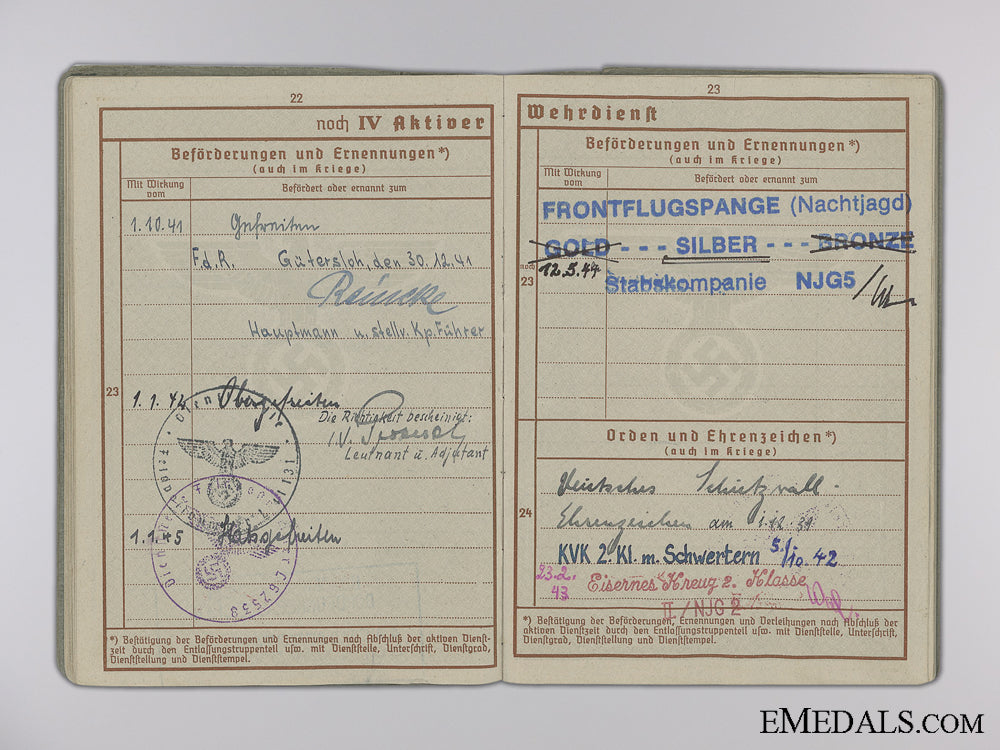 22
noch IV Aktiver
Beförderungen und Ernennungen*)
(auch im Kriege)
Mit Wirkung vom
Befördert oder ernannt zum
1.10.41 Gefreiten
F.d.R. Gütersloh, den 30.12.41
Reincke
Hauptmann u. stellv. Kp. Führer
23
1.1.44 Obergefreiten
Die Richtigkeit bescheinigt:
I.V.
Leutnant u. Adjutant
1.1.45 Hptgefreiten
*) Bestätigung der Beförderungen und Ernennungen nach Abschluß der aktiven Dienst-
zeit durch den Entlassungstruppenteil usw. mit Dienststelle, Unterschrift, Dienstgrad,
Dienststellung und Dienststempel.
23
Wehrdienst
Beförderungen und Ernennungen*)
(auch im Kriege)
Mit Wirkung vom
Befördert oder ernannt zum
FRONTFLUGSPANGE (Nachtjagd)
GOLD - - - SILBER - - - BRONZE
noch 23
12.5.44
Stabskompanie NJG5
Orden und Ehrenzeichen*)
(auch im Kriege)
Deutsches Schutzwall-
24
Ehrenzeichen am 1.12.39
KVK 2. Kl. m. Schwertern 5./10.42
23.2.43 Eisernes Kreuz 2. Klasse
II/NJG 2
*) Bestätigung der Beförderungen, Ernennungen und Verleihungen nach Abschluß der
aktiven Dienstzeit durch den Entlassungstruppenteil usw. mit Dienststelle, Unterschrift,
Dienstgrad, Dienststellung und Dienststempel.
EMEDALS.COM